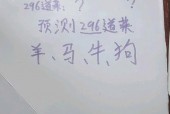 296道菜：？ ？
预测296道菜
羊、马、牛、狗